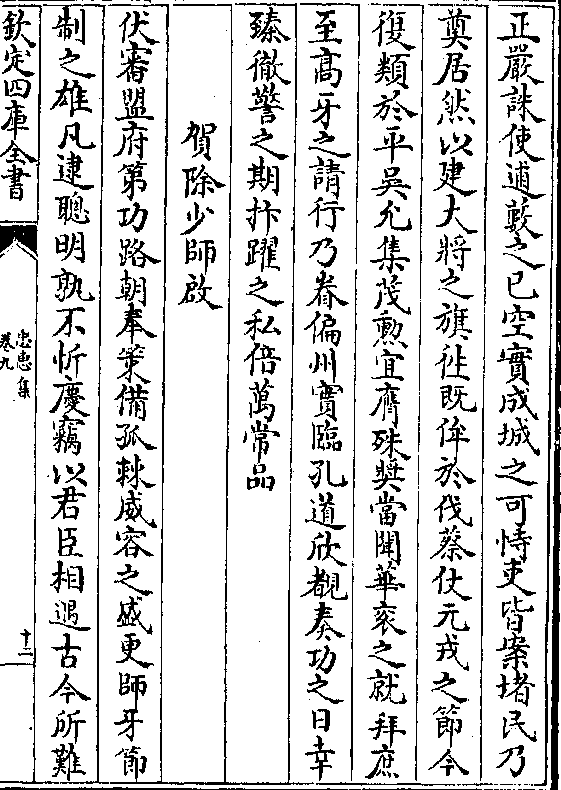 正嚴誅使逋藪之已空實成城之可恃吏皆案堵民乃
奠居然以建大將之旗徃既侔於伐蔡仗元戎之節今
復類於平吳允集茂勲宜膺殊奬當聞華衮之就拜庶
至高牙之請行乃眷偏州實臨孔道欣覩奏功之日幸
臻徹警之期抃躍之私倍萬常品
賀除少師啟
伏審盟府第功路朝奉策備孤棘威容之盛更師牙節
制之雄凡逮聰明孰不忻慶竊以君臣相遇古今所難
欽定四庫全書
忠惠集
卷九
十二